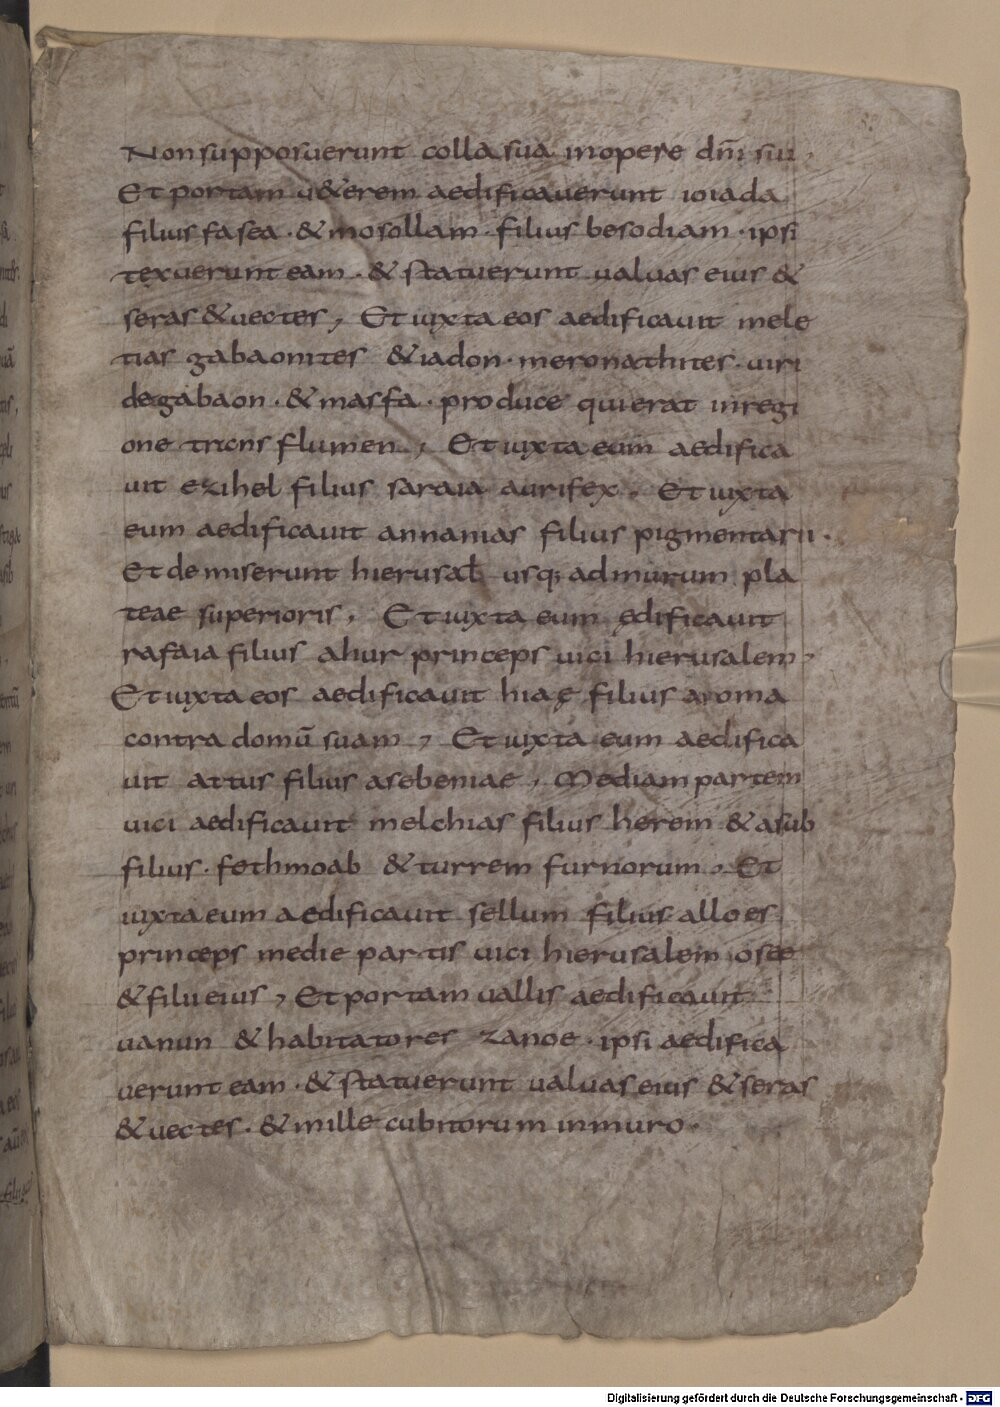 Non supposuerunt colla sua inopere dn̄i sui,
Et portam u&erem aedificauerunt ioiada
filius fasea · & mosollam · filius besodiam · ipsi
texuerunt eam · & statuerunt ualuas eius &
seras & uectes, Et iuxta eos aedificauit mele
tias gabaonites & iadon · meronathites · uiri
degabaon · & masfa · produce qui erat inregi
one trans flumen, Et iuxta eum aedifica
uit ezihel filius saraia aurifex, Et iuxta
eum aedificauit annanias filius pigmentarii ·
Et demiserunt hierusał usq; ad murum pla
teae superioris, Et iuxta eum ędificauit
rafaia filius ahur princeps uici hierusalem,
Et iuxta eos aedificauit hiaę filius aroma
contra domū suam, Et iuxta eum aedifica
uit attus filius asebeniae, Mediam partem
uici aedificauit melchias filius herem & asub
filius · fethmoab & turrem furnorum, Et
iuxta eum aedificauit sellum filius alloes
princeps medie partis uici hierusalem
& filii eius, Et portam uallis aedificauit
uanun & habitatores zanoe · ipsi aedifica
uerunt eam · & statuerunt ualuas eius & seras
& uectes · & mille cubitorum inmuro ·
Digitalisierung gefördert durch die Deutsche Forschungsgemeinschaft - DFG